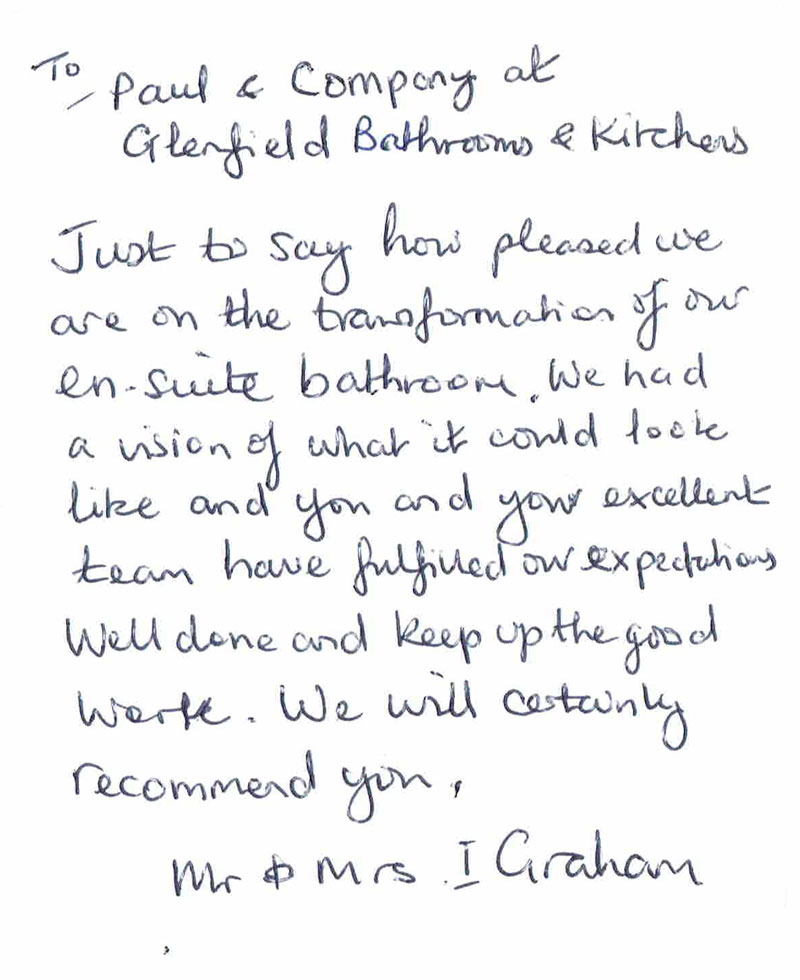 To Paul & Company at
Glenfield Bathrooms & Kitchens
Just to say how pleased we
are on the transformation of our
en-suite bathroom. We had
a vision of what it could look
like and you and your excellent
team have fulfilled our expectations
Well done and keep up the good
work. We will certainly
recommend you.
Mr & Mrs I Graham